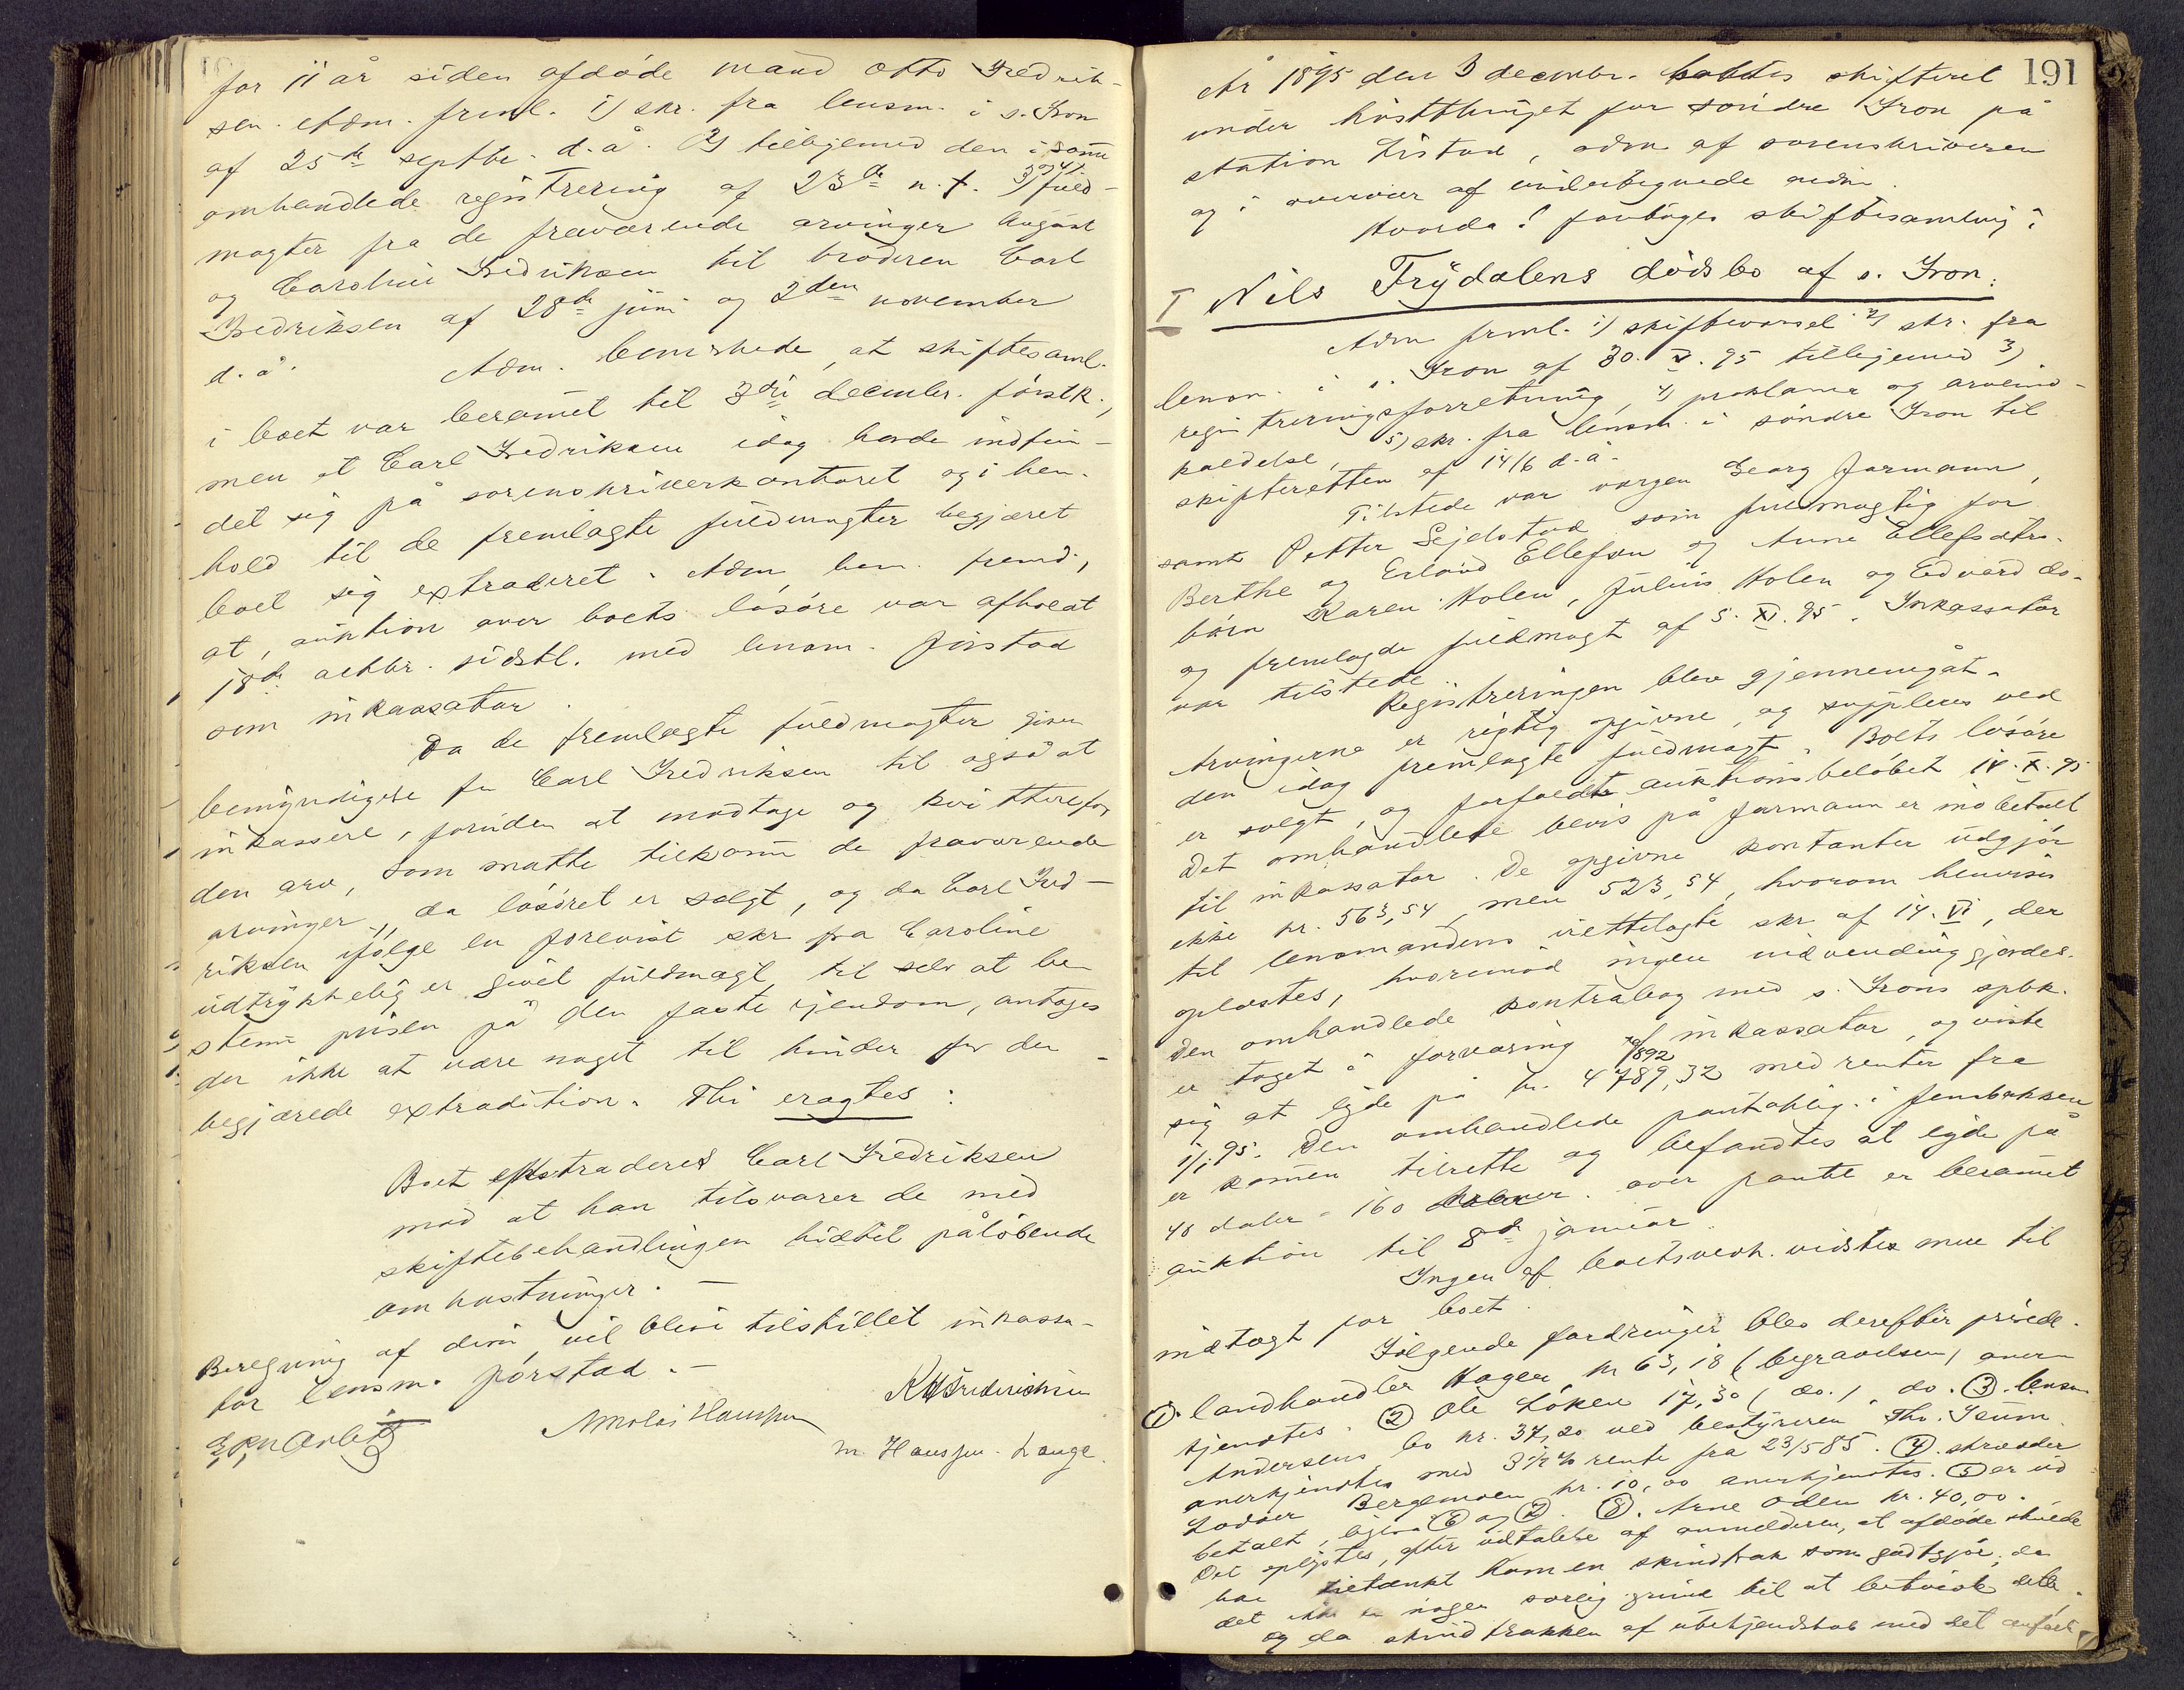 for 11 år siden afdöde mand Otto Fredrik-
sen. Adm. freml. 1) skr. fra lensm. i s. Fron
af 25de septbr. d. å. 2) tilligemed den i samme
omhandlede registrering af 23de n. f. 3) og 4) fuld-
magter fra de fraværende arvinger August
og Caroline Fredriksen til broderen Carl
Fredriksen af 28de juni og 2den november
d. å.
Adm. bemerkede, at skiftesaml.
i boet var beramet til 3die decmbr. förstk.,
men at Carl Fredriksen idag havde indfun-
det sig på sorenskriverkontoret og i hen-
hold til de fremlagte fuldmagter begjæret
boet sig extraderet. Adm. bem. fremd.,
at auktion over boets lösöre var afholdt
18de oktbr. sidstl. med lensm. Forstad
som inkassator.
Da de fremlagte fuldmagter giver
bemyndigelse for Carl Fredriksen til også at
inkassere, foruden at modtage og kvittere for
den arv, som måtte tilkomme de fraværende
arvinger, da lösöret er solgt, og da Carl Fred-
riksen ifölge en forevist skr. fra Caroline
udtrykkelig er givet fuldmagt til selv at be-
stemme prisen på den faste eiendom, antages
der ikke at være noget til hinder for den
begjærede extradition. Thi eragtes:
Boet extraderes Carl Fredriksen
mod at han tilsvarer de med
skiftebehandlingen hidtil påløbende
omkostninger. —
Beregning af dem vil blive tilstillet inkassa-
tor lensm. Forstad. —
Nicolai Hanssen
M. Hanssen. Lauge.
191
År 1895 den 3 decembr. holdtes skifteret
under hösttinget for söndre Fron på
station Listad, adm. af sorenskriveren
og i overvær af undertegnede vidner.
Hvorda! foretoges skiftesamling i
I Nils Frydalens dödsbo af s. Fron:
Adm. freml. 1) skiftevarsel 2) skr. fra
lensm. i s. Fron af 30. 95 tilligemed 3)
registreringsforretning, 4) proklama og arveind-
kaldelse, 5) skr. fra lensm. i söndre Fron til
skifteretten af 14/6 d. å.
Tilstede var vergen Georg Formann,
samt Petter Sejelstad som fuldmægtig for
Berthe og Erland Ellefsen og Anne Ellefsdtrs.
börn Karen Holen, Julius Holen og Edvard do.
og fremlagde fuldmagt af 5. XI. 95. Inkassator
var tilstede.
Registreringen blev gjennemgåt.
Arvingerne er rigtig opgivne, og suppleres ved
den idag fremlagte fuldmagt. Boets lösöre
er solgt, og forfaldt auktionsbelöbet 18. X. 95
Det omhandlede bevis på Formann er indbetalt
til inkassator. De opgivne kontanter udgjör
ikke kr. 563,54, men 523,54, hvorom henvises
til lensmandens irettelagte skr. af 14. VI, der
oplæstes, hvorimod ingen indvending gjordes.
Den omhandlede kontrabog med s. Frons spbk.
er taget i forvaring af inkassator, og viste
sig at lyde på kr. 4789,32 med renter fra
1/1. 95. Den omhandlede pantoblig. i
er kommen tilrette og befandtes at lyde på
40 daler = 160 kroner. over pante er beramet
auktion til 8de januar.
Ingen af boets vedk. vidste mere til
indtægt for boet.
Fölgende fordringer blev derefter prøvede.
① landhandler Hagen kr. 63,18 (begravelsen) aner-
kjendtes. ② Ole Löken 17,30 (do.) do. ③. lensm.
Andersens bo kr. 37,20 ved bestyreren Thr.
anerkjendtes med 3½ % rente fra 23/5 85. ④. skrædder
Bergemoen kr. 10,00 anerkjendtes. ⑤ er ud
betalt, ligesom ⑥ og ⑦. ⑧. Arne Oden kr. 40,00.
Det oplystes, efter udtalelse af anmelderen, at afdöde skulde
have tiltænkt ham en skindfrak som godtgjör; da
det ikke er nogen særlig grund til at betvivle dette,
og da skindfrakken af ubekjendtskab med det anfört